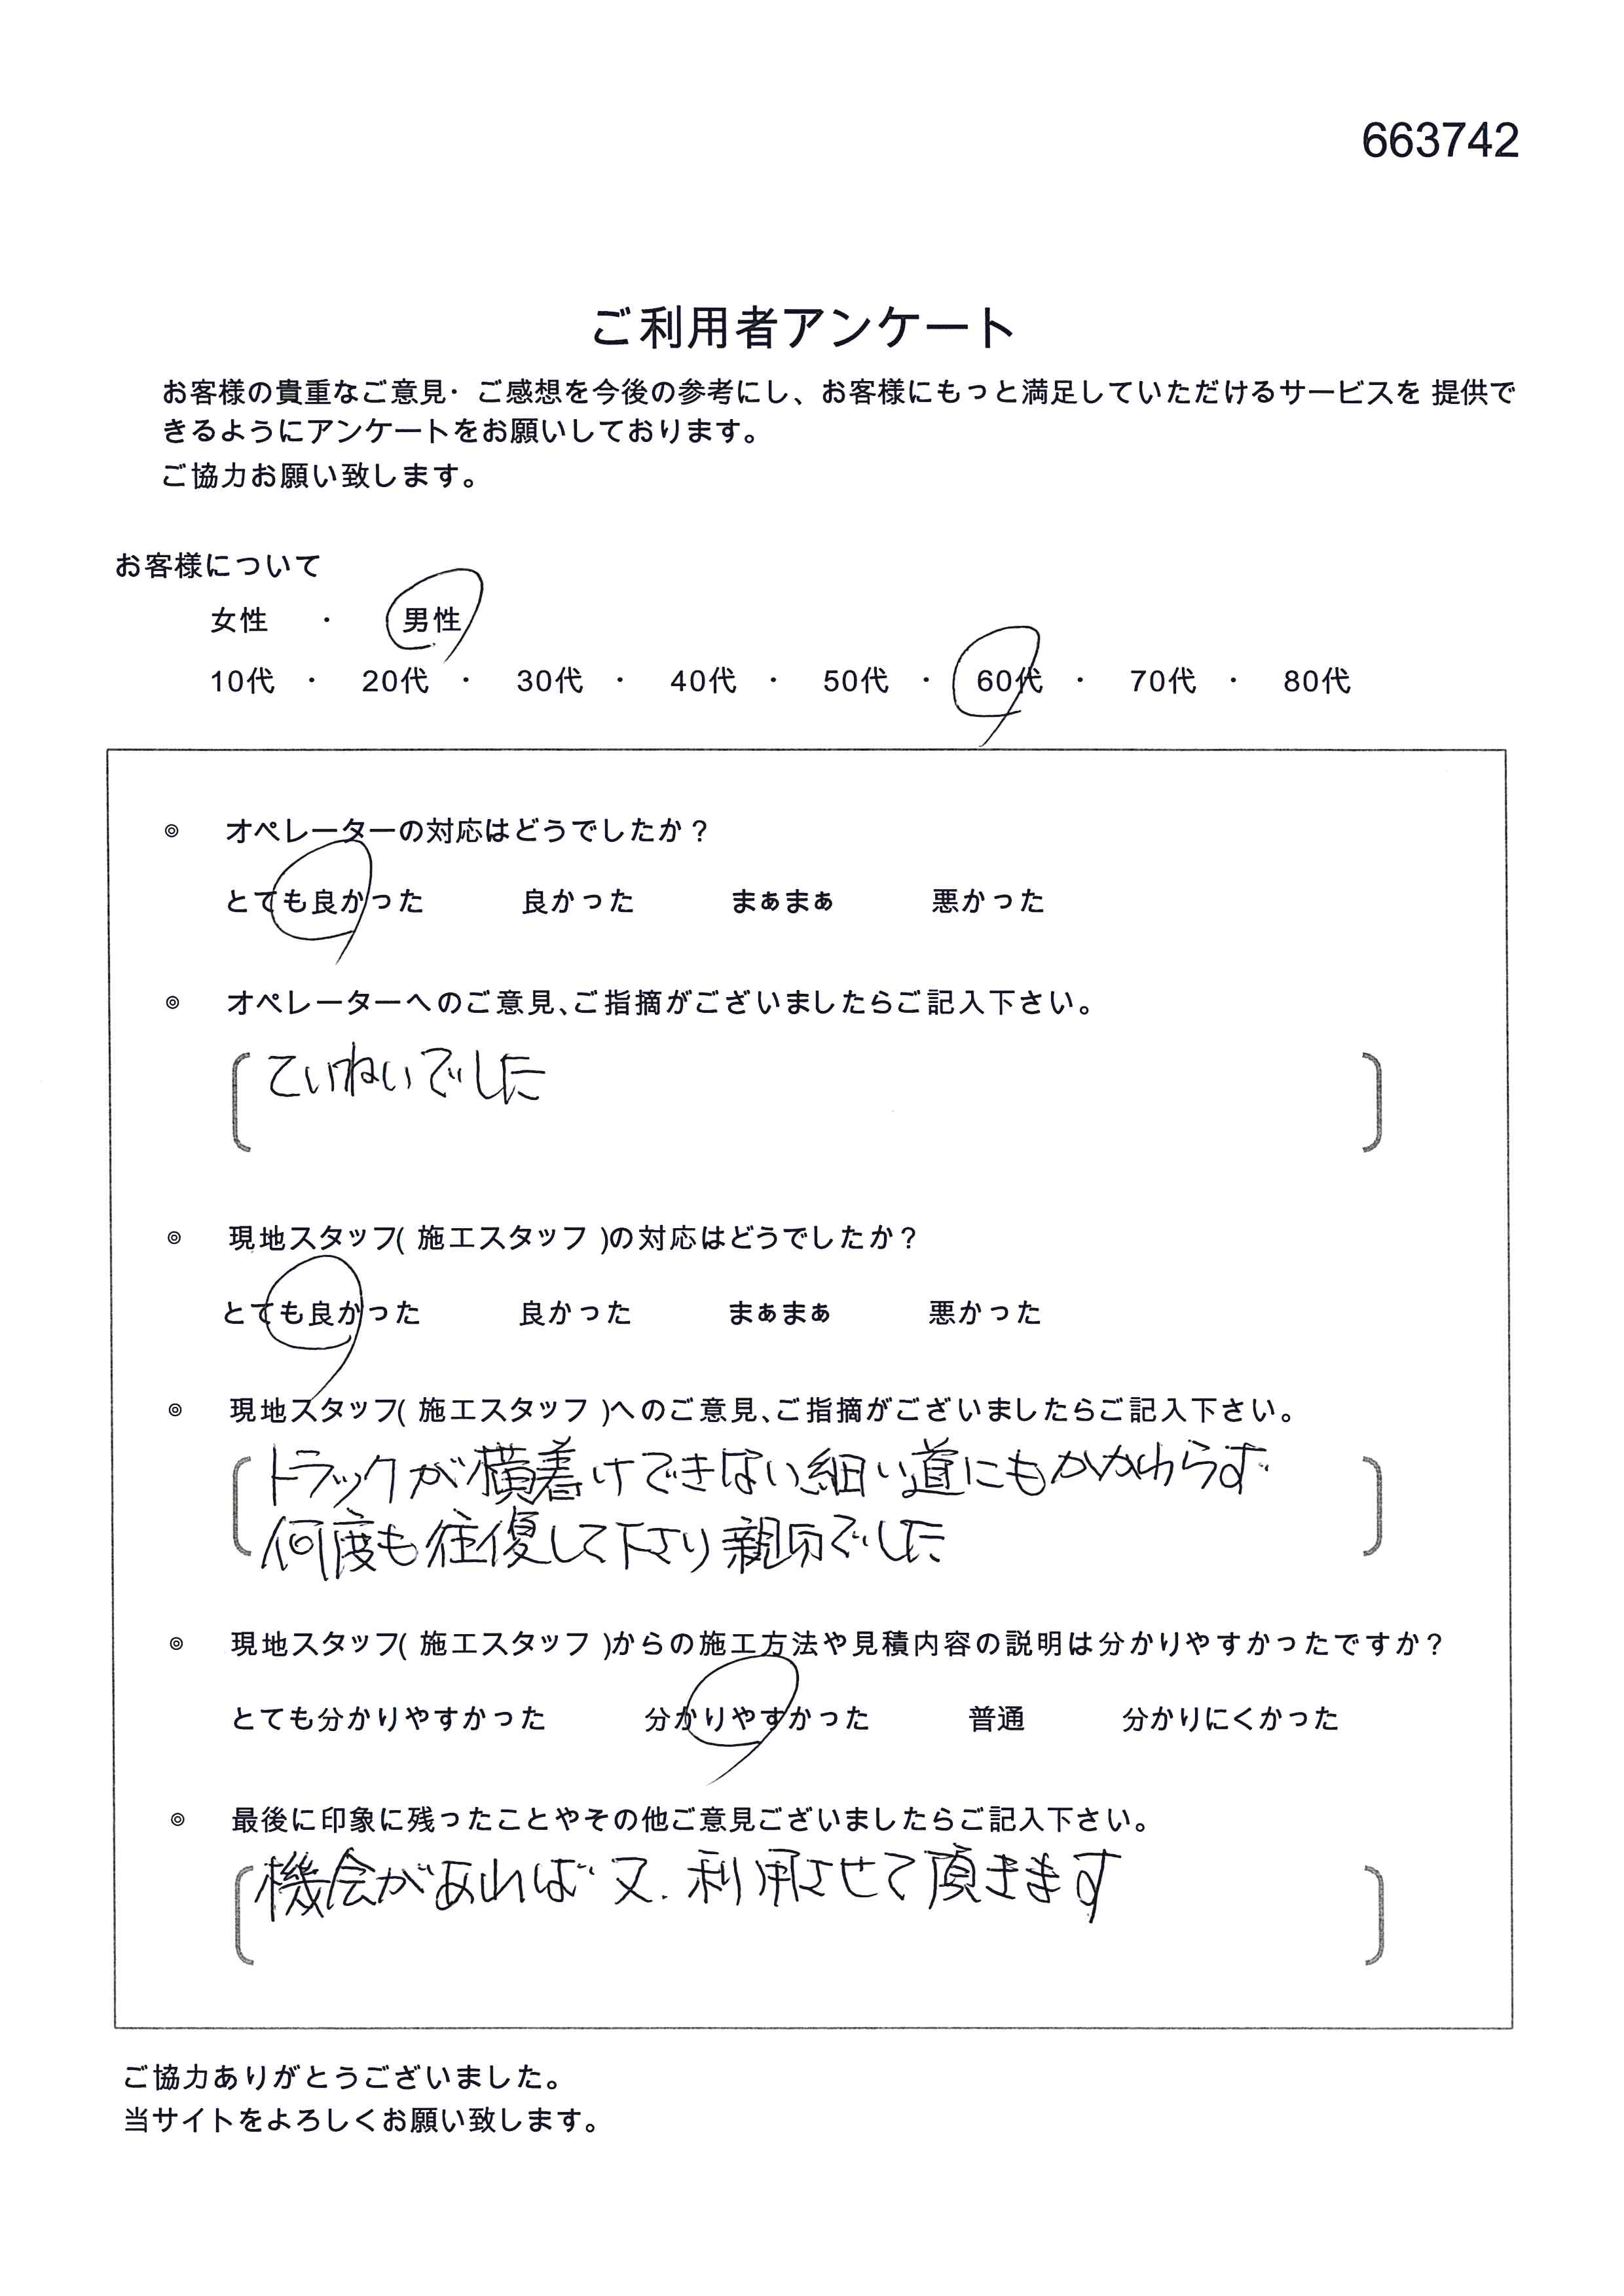 663742
ご利用者アンケート
お客様の貴重なご意見・ご感想を今後の参考にし、お客様にもっと満足していただけるサービスを 提供で
きるようにアンケートをお願いしております。
ご協力お願い致します。
お客様について
女性 ・ 男性
10代 ・ 20代 ・ 30代 ・ 40代 ・ 50代 ・ 60代 ・ 70代 ・ 80代
◎ オペレーターの対応はどうでしたか？
とても良かった 良かった まぁまぁ 悪かった
◎ オペレーターへのご意見、ご指摘がございましたらご記入下さい。
ていねいでした
◎ 現地スタッフ( 施工スタッフ )の対応はどうでしたか？
とても良かった 良かった まぁまぁ 悪かった
◎ 現地スタッフ( 施工スタッフ )へのご意見、ご指摘がございましたらご記入下さい。
トラックが横着けできない細い道にもかかわらず
何度も往復して下さり親切でした
◎ 現地スタッフ( 施工スタッフ )からの施工方法や見積内容の説明は分かりやすかったですか？
とても分かりやすかった 分かりやすかった 普通 分かりにくかった
◎ 最後に印象に残ったことやその他ご意見ございましたらご記入下さい。
機会があれば又、利用させて頂きます
ご協力ありがとうございました。
当サイトをよろしくお願い致します。